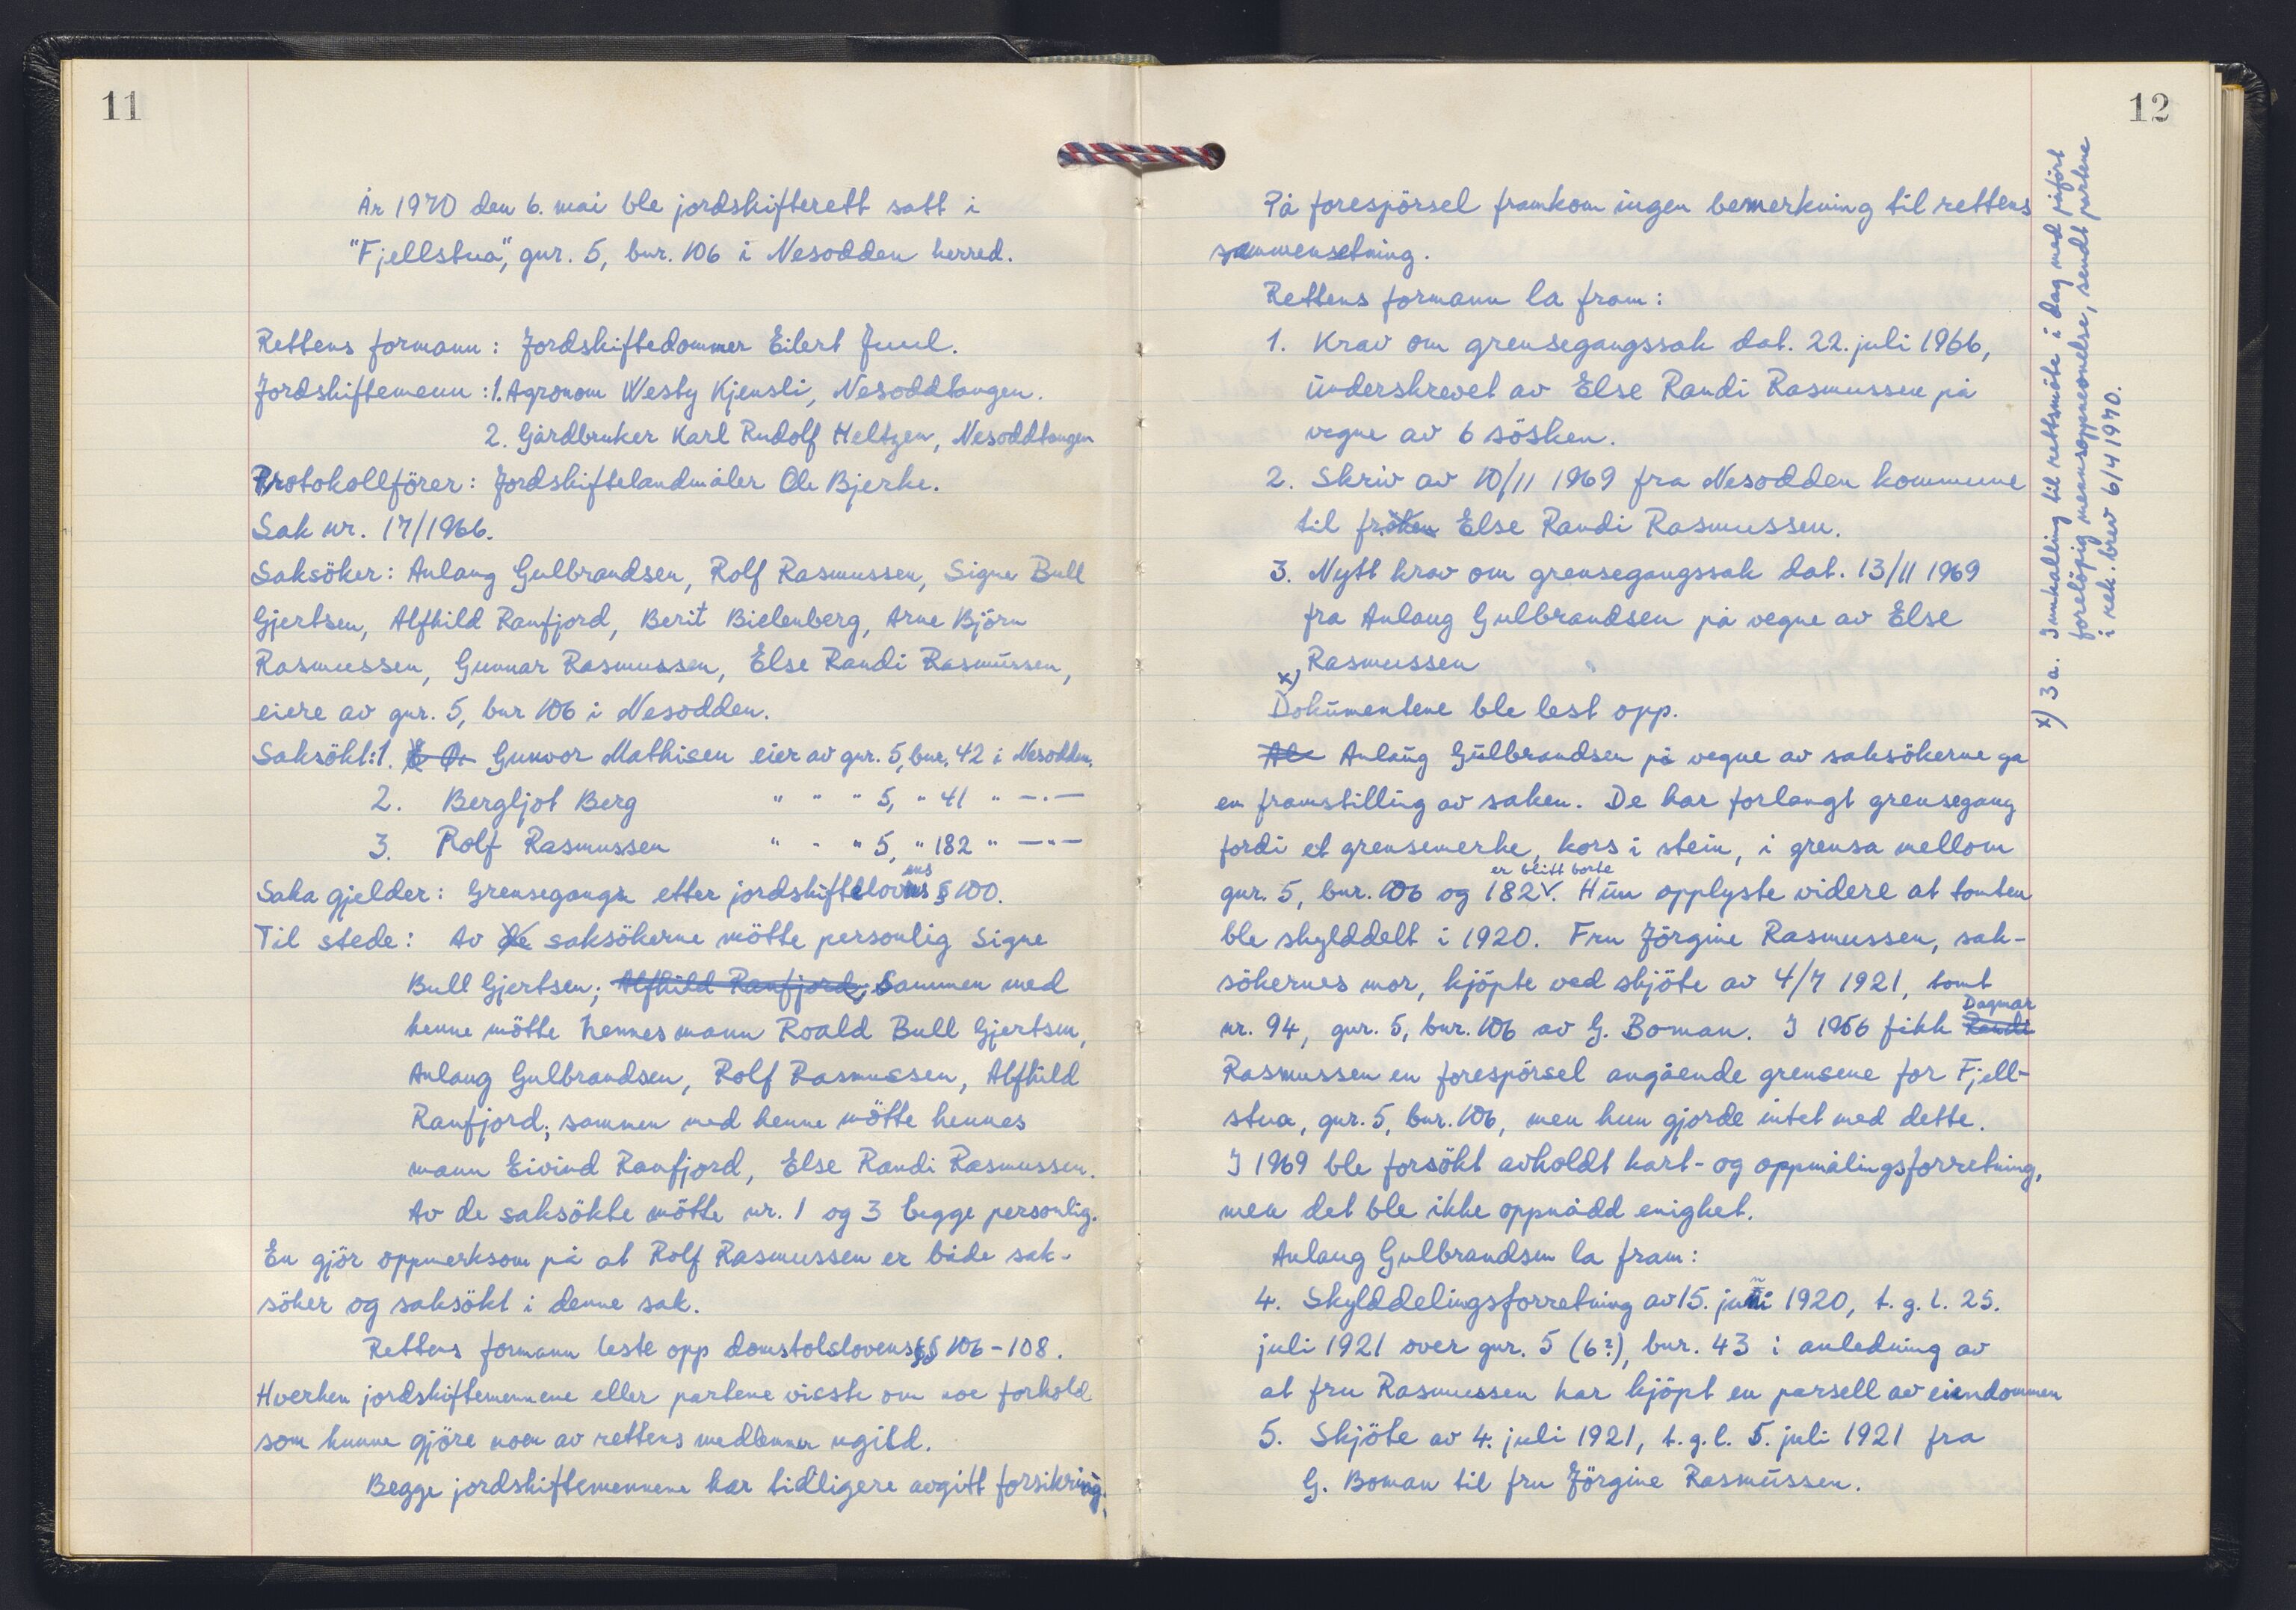 11
År 1970 den 6. mai ble jordskifterett satt i
"Fjellstua", gnr. 5, bnr. 106 i Nesodden herred.
Rettens formann: Jordskiftedommer Eilert Juul.
Jordskiftemenn: 1. Agronom Westy Kjensli, Nesoddtangen.
2. Gårdbruker Karl Rudolf Heltzen, Nesoddtangen
Protokollförer: Jordskiftelandmåler Ole Bjerke.
Sak nr. 17/1966.
Saksöker: Anlaug Gulbrandsen, Rolf Rasmussen, Signe Bull
Gjertsen, Alfhild Ranfjord, Berit Bielenberg, Arne Björn
Rasmussen, Gunnar Rasmussen, Else Randi Rasmussen,
eiere av gnr. 5, bnr 106 i Nesodden.
Saksökt: 1. Gunvor Mathisen eier av gnr. 5, bnr. 42 i Nesodden.
2. Bergljot Berg " " " 5, " 41 " —"—
3. Rolf Rasmussen " " " 5, " 182 " —"—
Saka gjelder: Grensegang etter jordskiftelovens § 100.
Til stede: Av saksökerne mötte personlig Signe
Bull Gjertsen; Alfhild Ranfjord; Sammen med
henne mötte hennes mann Roald Bull Gjertsen,
Anlaug Gulbrandsen, Rolf Rasmussen, Alfhild
Ranfjord; sammen med henne mötte hennes
mann Eivind Ranfjord, Else Randi Rasmussen.
Av de saksökte mötte nr. 1 og 3 begge personlig.
En gjör oppmerksom på at Rolf Rasmussen er både sak-
söker og saksökt i denne sak.
Rettens formann leste opp domstolslovens §§ 106-108.
Hverken jordskiftemennene eller partene visste om noe forhold
som kunne gjöre noen av rettens medlemmer ugild.
Begge jordskiftemennene har tidligere avgitt forsikring.
12
På forespörsel framkom ingen bemerkning til rettens
sammensetning.
Rettens formann la fram:
1. Krav om grensegangssak dat. 22. juli 1966,
underskrevet av Else Randi Rasmussen på
vegne av 6 sösken.
2. Skriv av 10/11 1969 fra Nesodden kommune
til fröken Else Randi Rasmussen.
3. Nytt krav om grensegangssak dat. 13/11 1969
fra Anlaug Gulbrandsen på vegne av Else
Rasmussen
x)
Dokumentene ble lest opp.
Anlaug Gulbrandsen på vegne av saksökerne ga
en framstilling av saken. De har forlangt grensegang
fordi et grensemerke, kors i stein, i grensa mellom
er blitt borte
gnr. 5, bnr. 106 og 182 v. Hun opplyste videre at tomten
ble skylddelt i 1920. Fru Jörgine Rasmussen, sak-
sökernes mor, kjöpte ved skjöte av 4/7 1921, tomt
Dagmar
nr. 94, gnr. 5, bnr. 106 av G. Boman. I 1956 fikk Randi
Rasmussen en forespörsel angående grensene for Fjell-
stua, gnr. 5, bnr. 106, men hun gjorde intet med dette.
I 1969 ble forsökt avholdt kart- og oppmålingsforretning,
men det ble ikke oppnådd enighet.
Anlaug Gulbrandsen la fram:
4. Skylddelingsforretning av 15. juni 1920, t.g.l. 25.
juli 1921 over gnr. 5 (6?), bnr. 43 i anledning av
at fru Rasmussen har kjöpt en parsell av eiendommen
5. Skjöte av 4. juli 1921, t.g.l. 5. juli 1921 fra
G. Boman til fru Jörgine Rasmussen.
x) 3a. Innkalling til rettsmöte i dag med påfört
forelöpig mennsoppnevnelse, sendt partene
i rek. brev 6/4 1970.